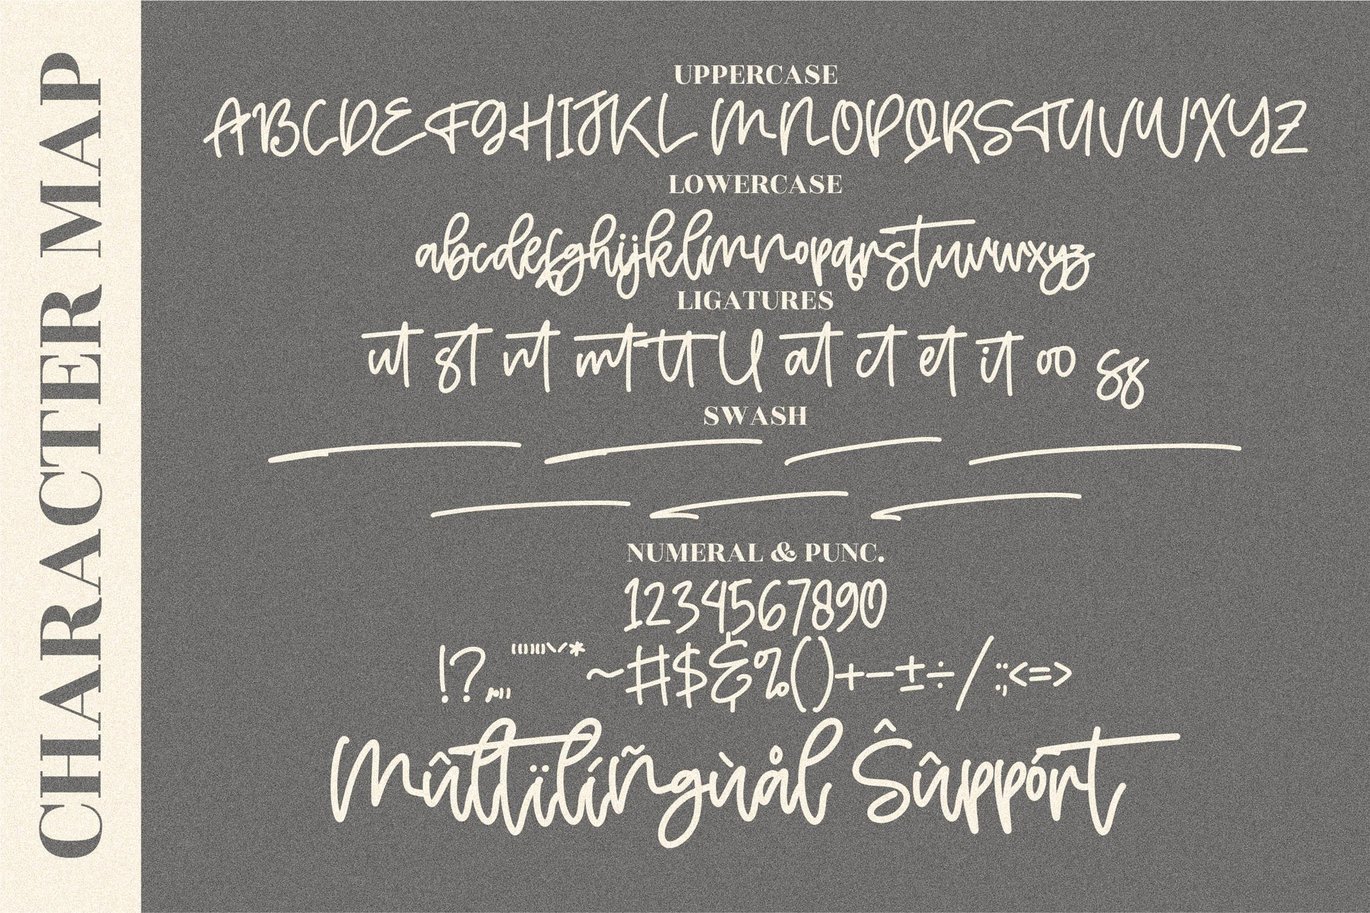 CHARACTER MAP
UPPERCASE
ABCDEFGHIJKLMNOPQRSTUVWXYZ
LOWERCASE
abcdefghijklmnopqrstuvwxyz
LIGATURES
ut st nt mt tt ll at ct et it oo ss
SWASH
NUMERAL & PUNC.
1234567890
~#$&%()+−±÷/:;<=>
Mûltïlíñgùål Ŝûppórt